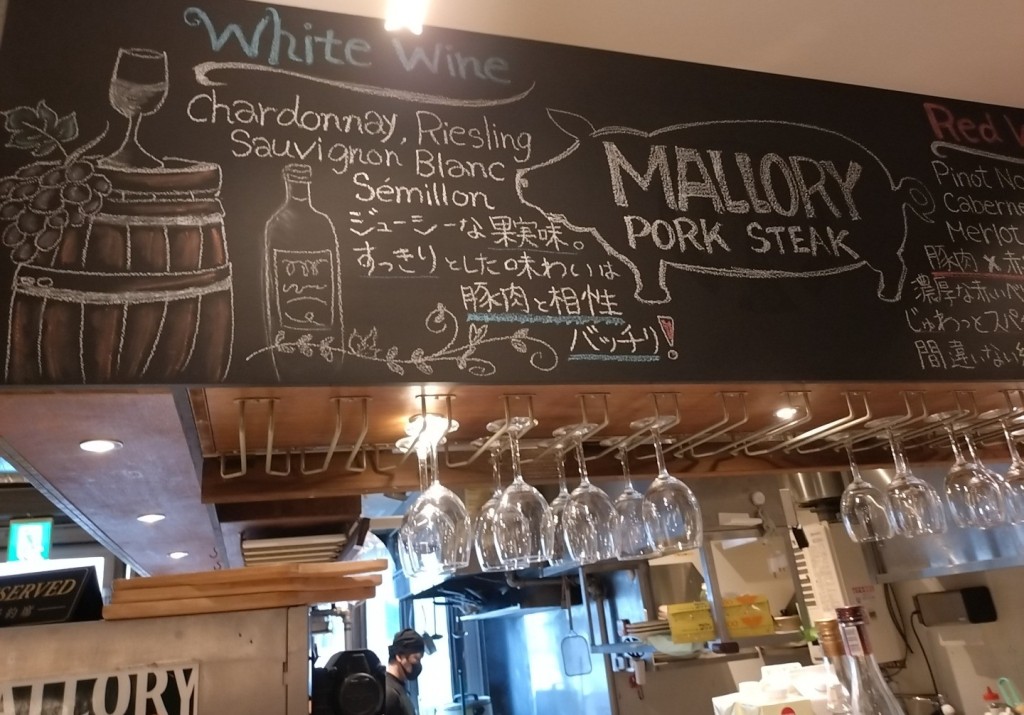 White Wine
Chardonnay, Riesling
Sauvignon Blanc
Sémillon
ジューシーな果実味。
すっきりとした味わいは
豚肉と相性
バッチリ!
MALLORY
PORK STEAK
Red
Pinot
Merlot
豚肉×赤
濃厚な赤い
じゅわっとスパ
間違いない
MALLORY